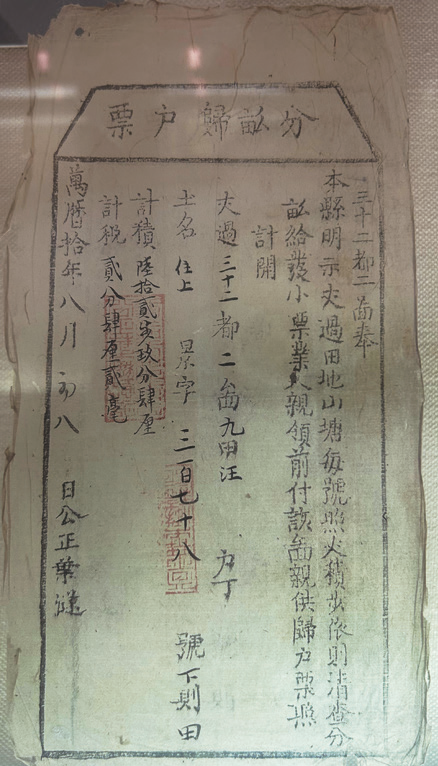 分畝歸戶票
三十二都二啚奉
本縣明示丈過田地山塘每號照丈積步依則清查分
畝給發小票業人親領前付該啚親供歸戶票照
計開
丈過三十二都二啚九甲汪 戶丁
土名住上 字三百七十八號下則田
計積陸拾貳步玖分肆厘
計税貳分肆厘貳毫
萬曆拾年八月初八日公正葉